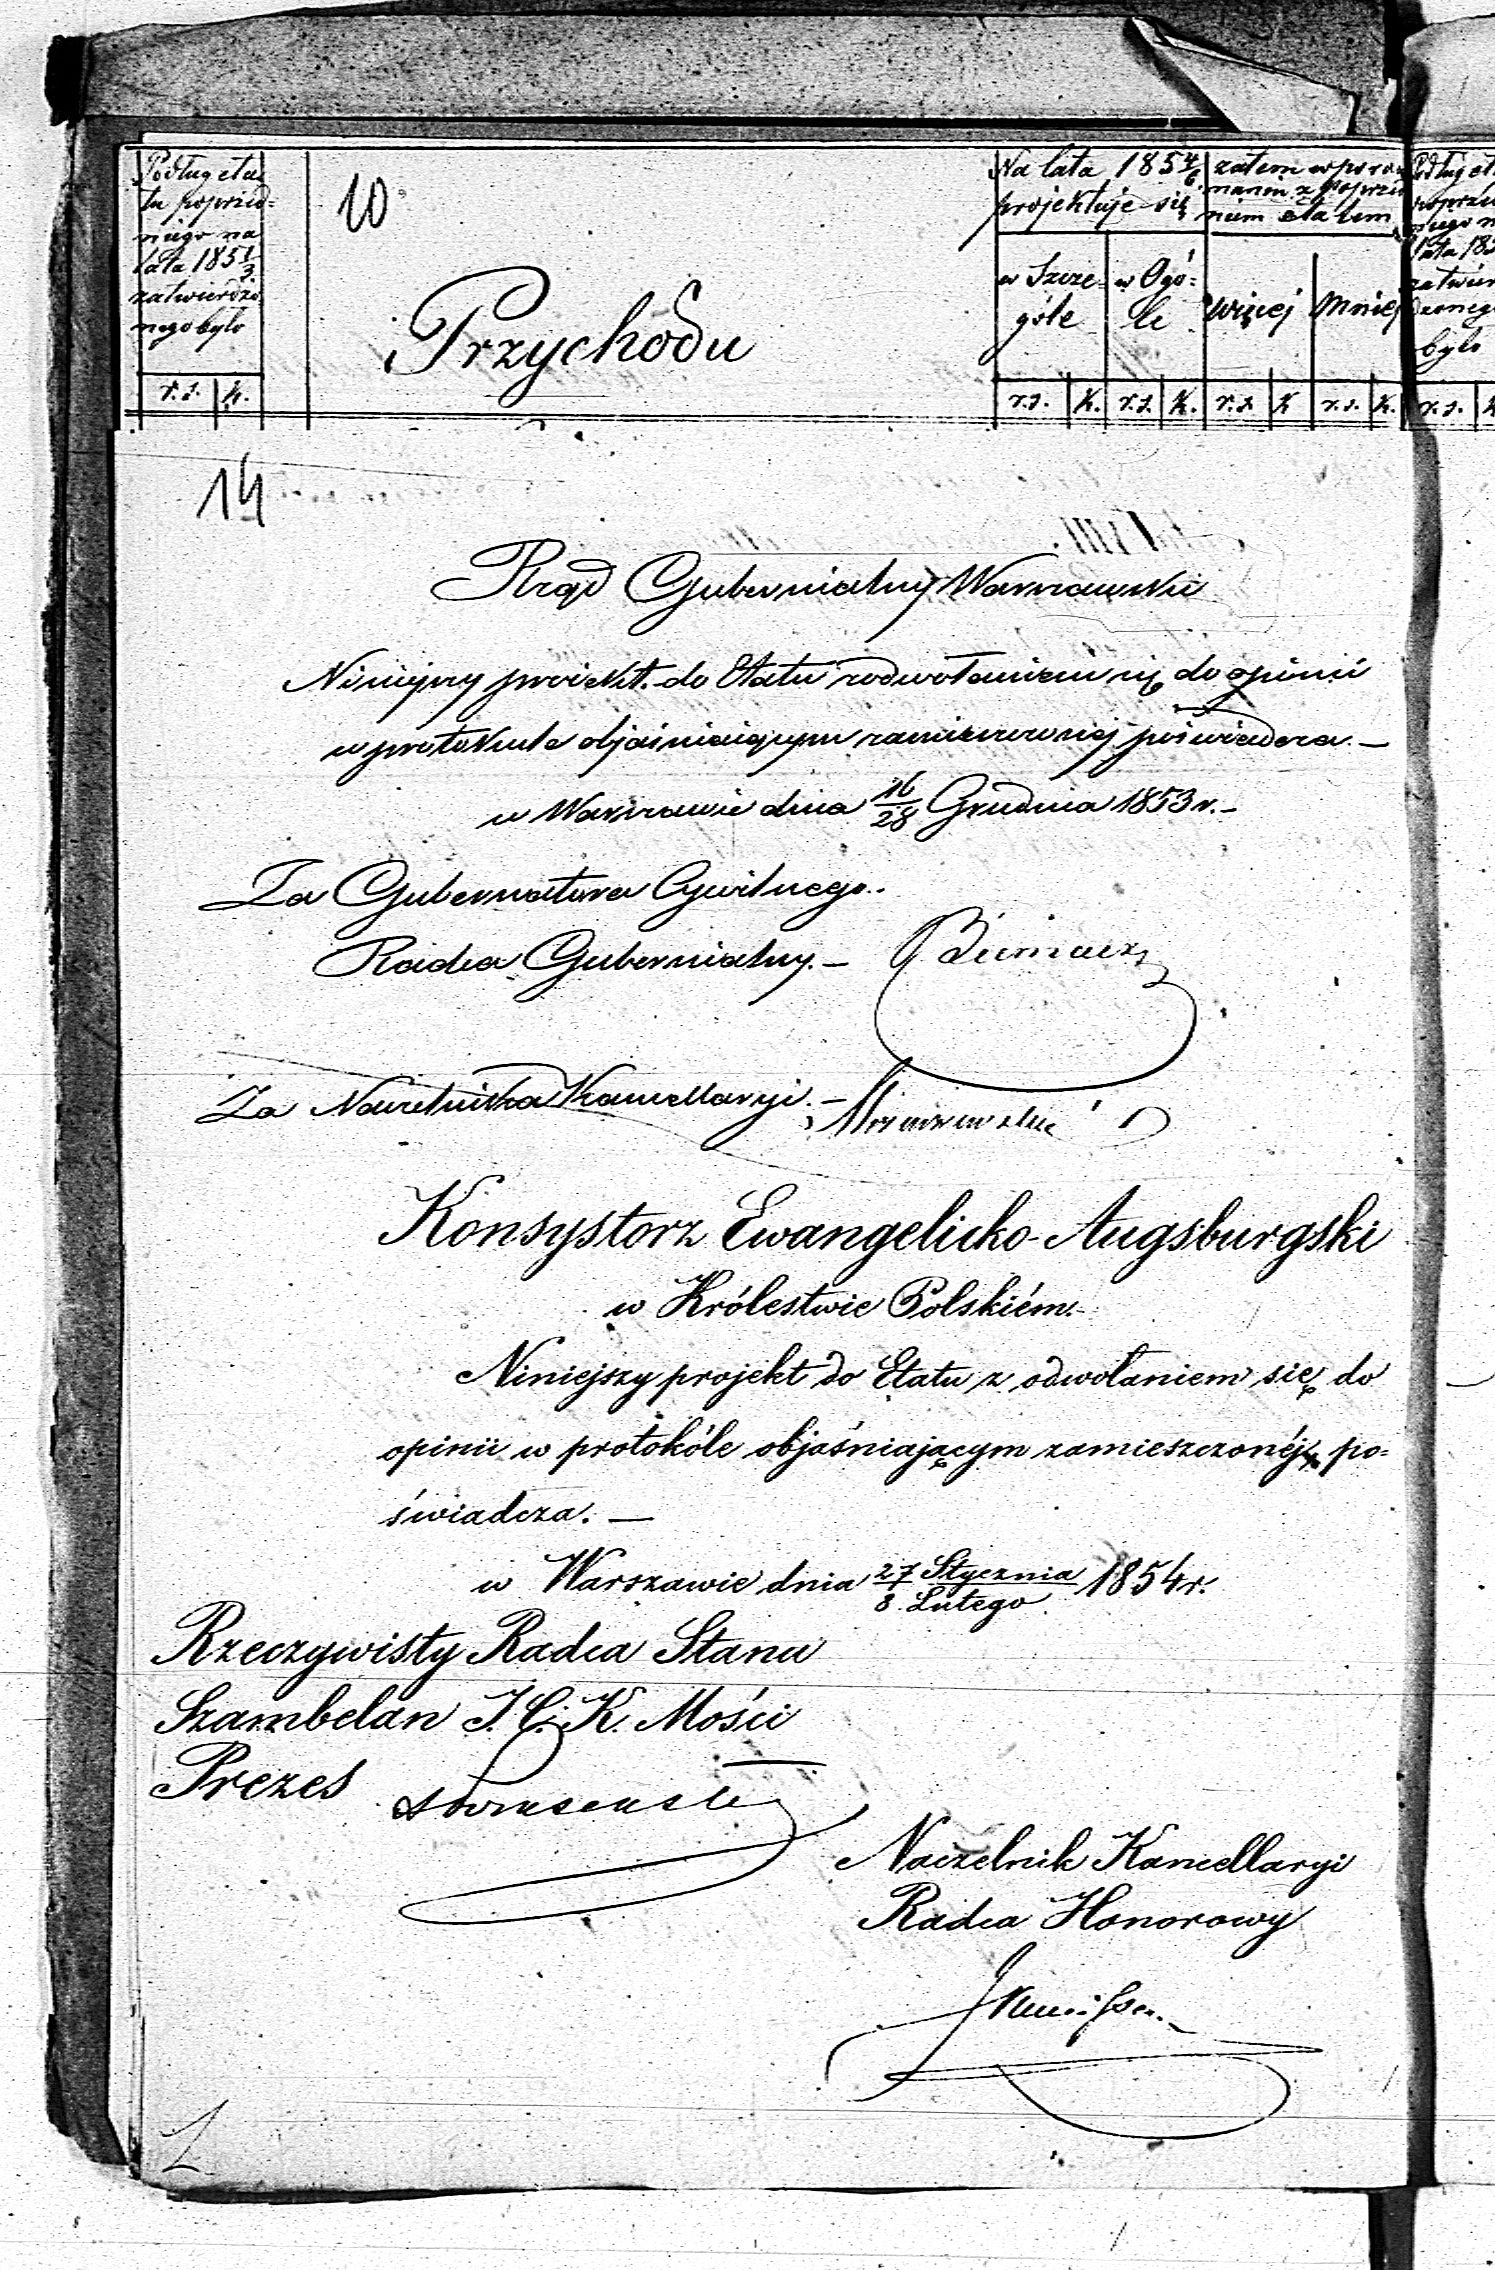 Podług eta-
tu poprzed-
niego na
lata 1851/3
zatwierdzo
nego było
r.s. k.
10
Przychodu
Na lata 1854/6
projektuje się
w Szcze-
góle
w Ogó-
le
zatem w porów
naniu z poprzed
nim etatem
Więcej
Mniej
r.s. K. r.s. K. r.s. K r.s. K.
Podług eta
poprzed
niego n
lata 185
zatwier
dzonego
było
r.s. k
14
Rząd Gubernialny Warszawski
Niniejszy proiekt do Etatu z odwołaniem się do opinii
w protokule objaśniaiącym zamieszczonej poświadcza. —
w Warszawie dnia 16/28 Grudnia 1853 r. –
Za Gubernatora Cywilnego.
Radca Gubernialny. –
Za Naczelnika Kancellaryi. –
Konsystorz Ewangelicko-Augsburgski
w Królestwie Polskiém.
Niniejszy projekt do Etatu z odwołaniem się do
opinii w protokóle objaśniającym zamieszczonéj, po-
świadcza. —
w Warszawie dnia 27 Stycznia/8 Lutego 1854 r.
Rzeczywisty Radca Stanu
Szambelan J. C. K. Mości
Prezes
Naczelnik Kancellaryi
Radca Honorowy